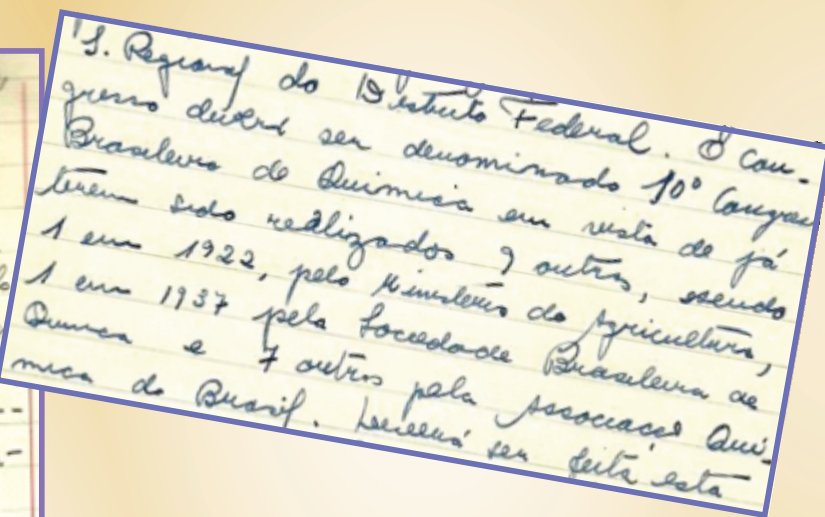 S. Regional do Districto Federal. O Con-
gresso deverá ser denominado 10º Congresso
Brasileiro de Quimica em vista de já
terem sido realizados 9 outros, sendo
1 em 1922, pelo Ministério da Agricultura,
1 em 1937 pela Sociedade Brasileira de
Quimica e 7 outros pela Associação Qui-
mica do Brasil. ser feita esta